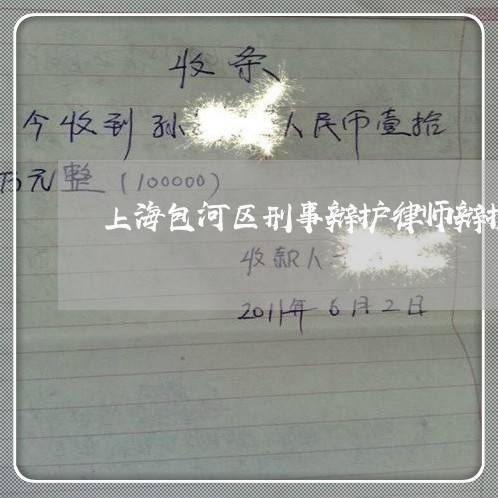 收条
今收到孙 人民币壹拾
万元整（100000）
上海包河区刑事辩护律师辩护
收款人
2011年6月2日